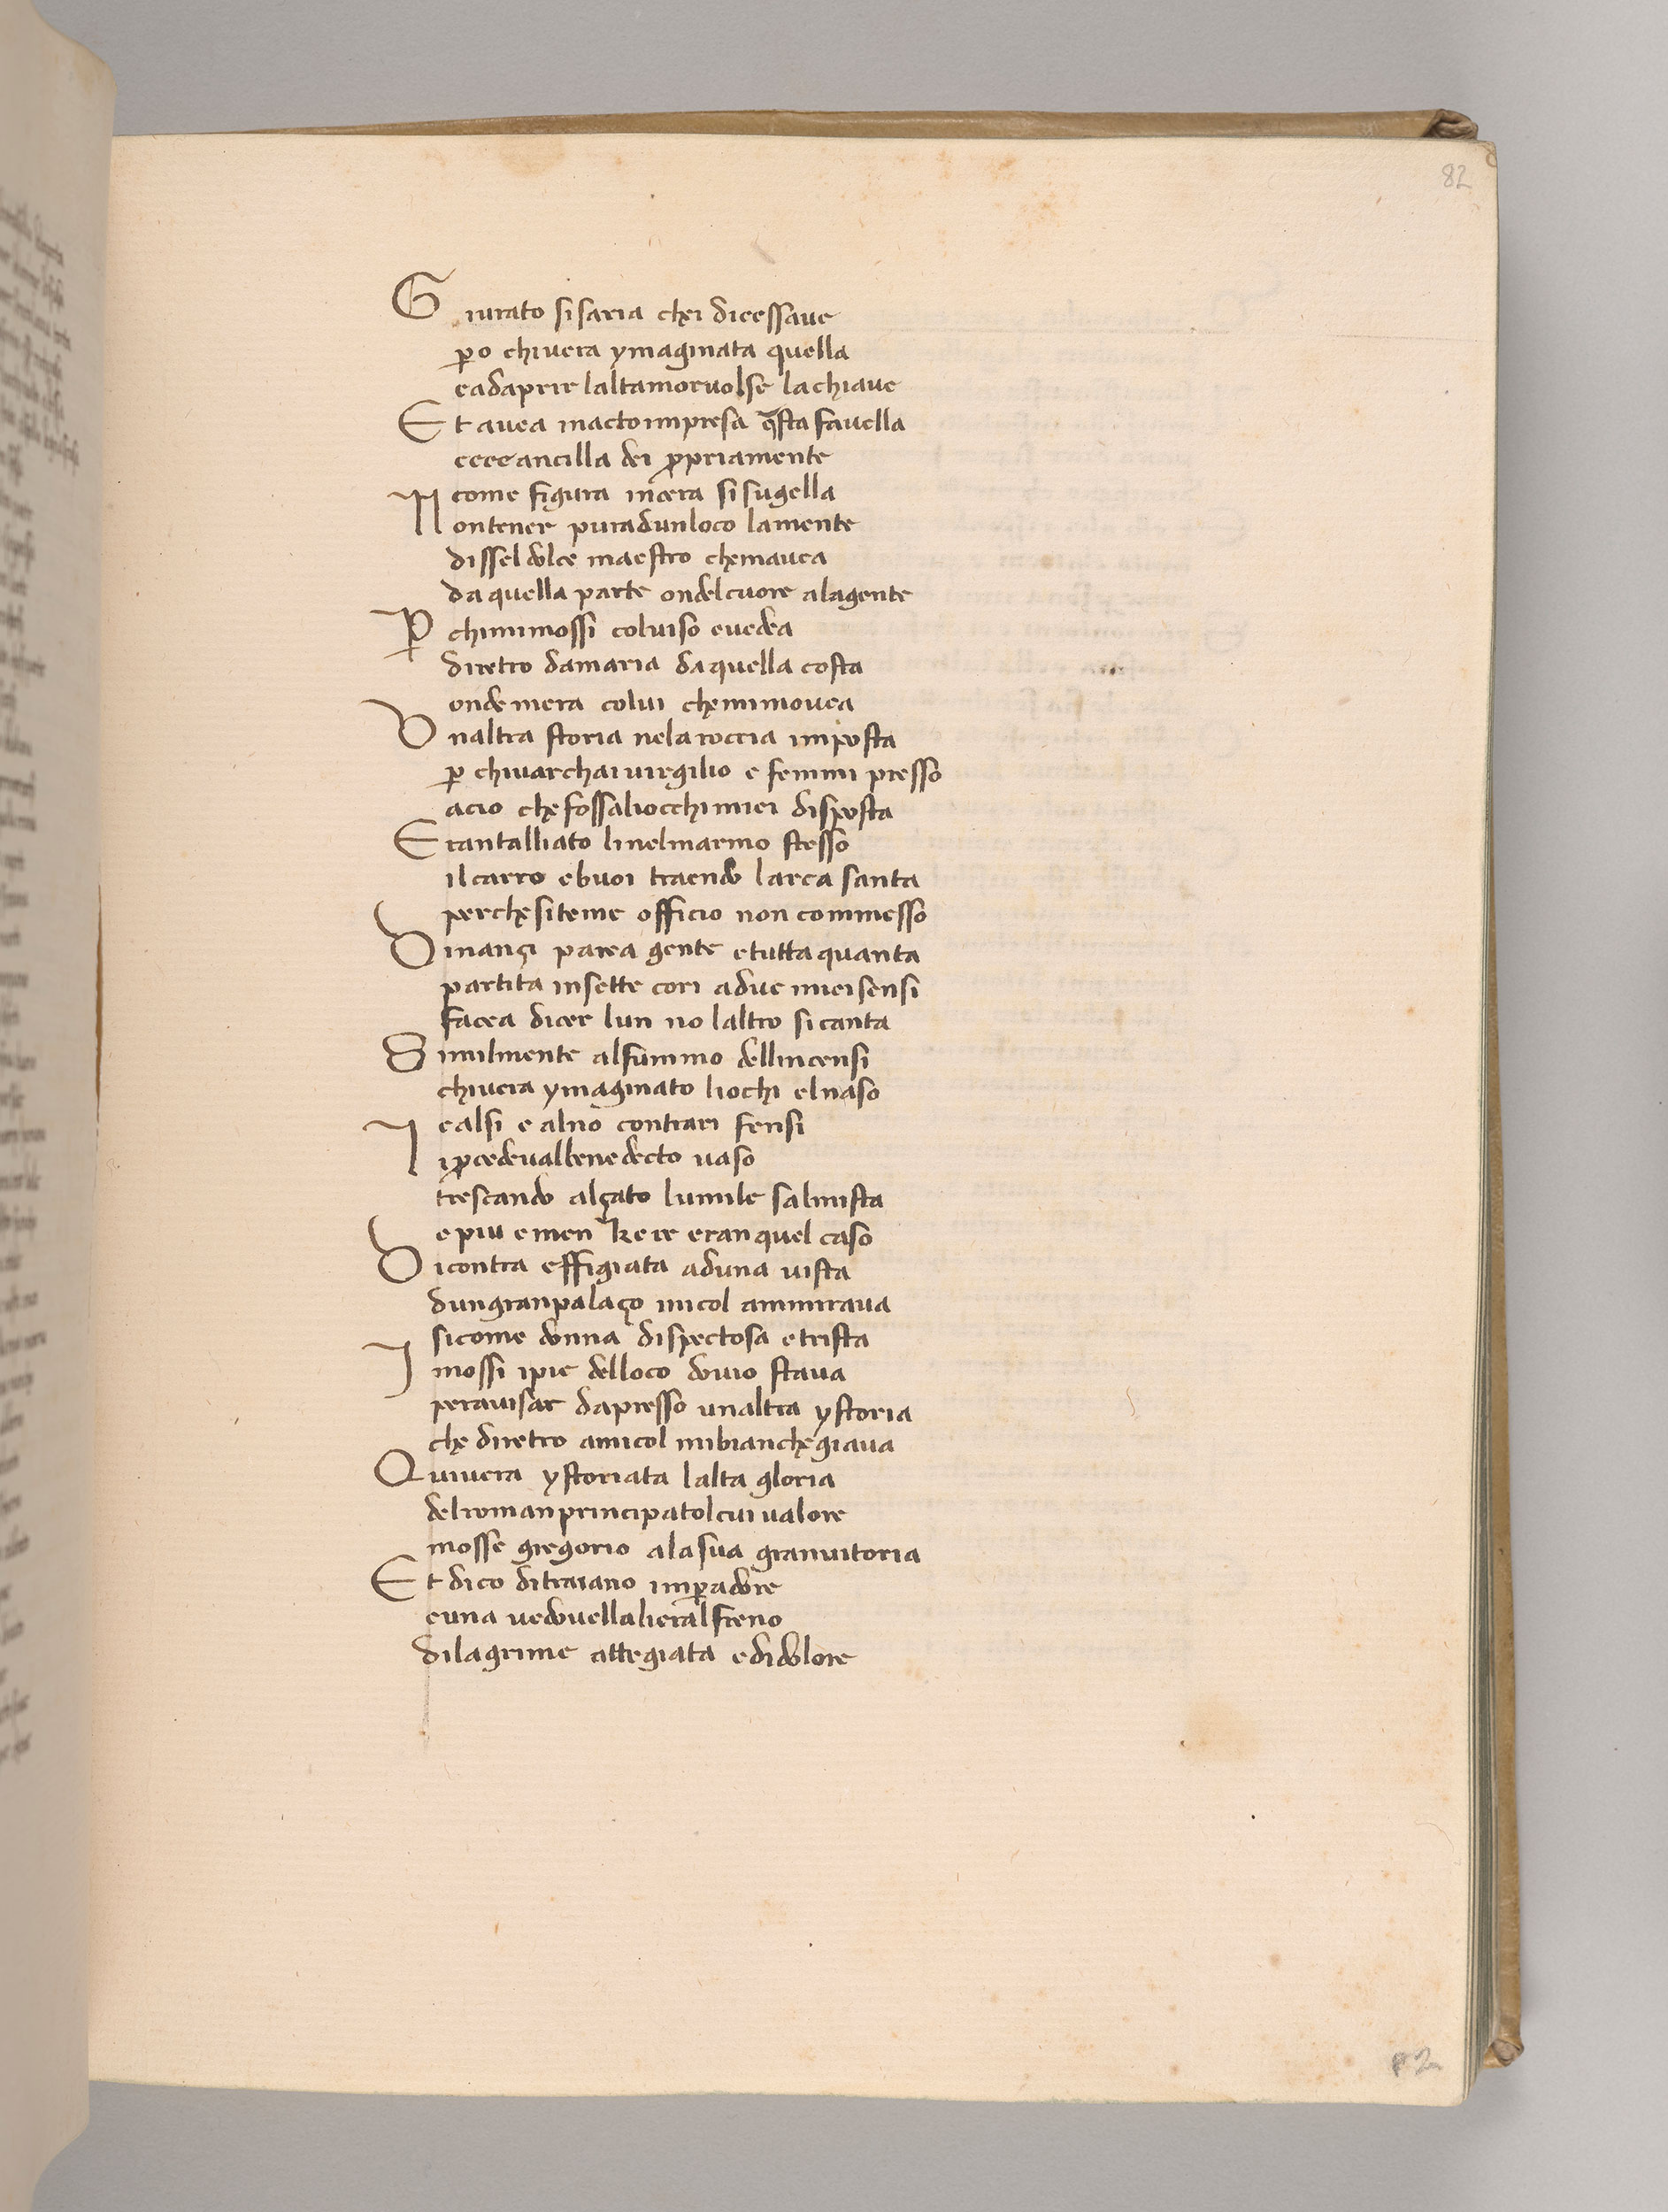 82
Giurato si saria chei dicessaue
ꝑo chiuera ymaginata quella
eadaprir laltamoruolse lachiaue
Et auea inactoimpresa q̄sta fauella
ecceancilla dei ꝓpriamente
come figura incera si sugella
Nontener puradunloco lamente
dissel dolce maestro chemauea
da quella parte ondelcuore alagente
Ꝑ chimimossi coluiso euedea
diretro damaria daquella costa
ondemera colui chemimouea
Unaltra storia nelaroccia imposta
ꝑ chiuarchaiuirgilio e femmi presso
acio che fossaliocchimiei disposta
Erantalliato linelmarmo stesso
il carro ebuoi traendo larca santa
perchesiteme officio non commesso
Dinançi parea gente etutta quanta
partita insette cori adue mieisensi
facea dicer lun no laltro si canta
Similmente alfummo dellincensi
chiuera ymaginato liochi elnaso
ealsi e alno contrari fensi
Iiꝓcedeualbenedecto uaso
trescando alçato lumile salmista
epiu emen ke re eranquel caso
Dicontra effigiata aduna uista
dungranpalaço micol ammiraua
sicome donna dispectosa etrista
Imossi ipie delloco douio staua
perauisar dapresso unaltra ystoria
che diretro amicol mibianchegiaua
Quiuera ystoriata lalta gloria
delromanprincipatolcui ualore
mosse gregorio alasua granuitoria
Et dico ditraiano imꝑadore
euna uedouellalieralfreno
dilagrime attegiata edidolore
82